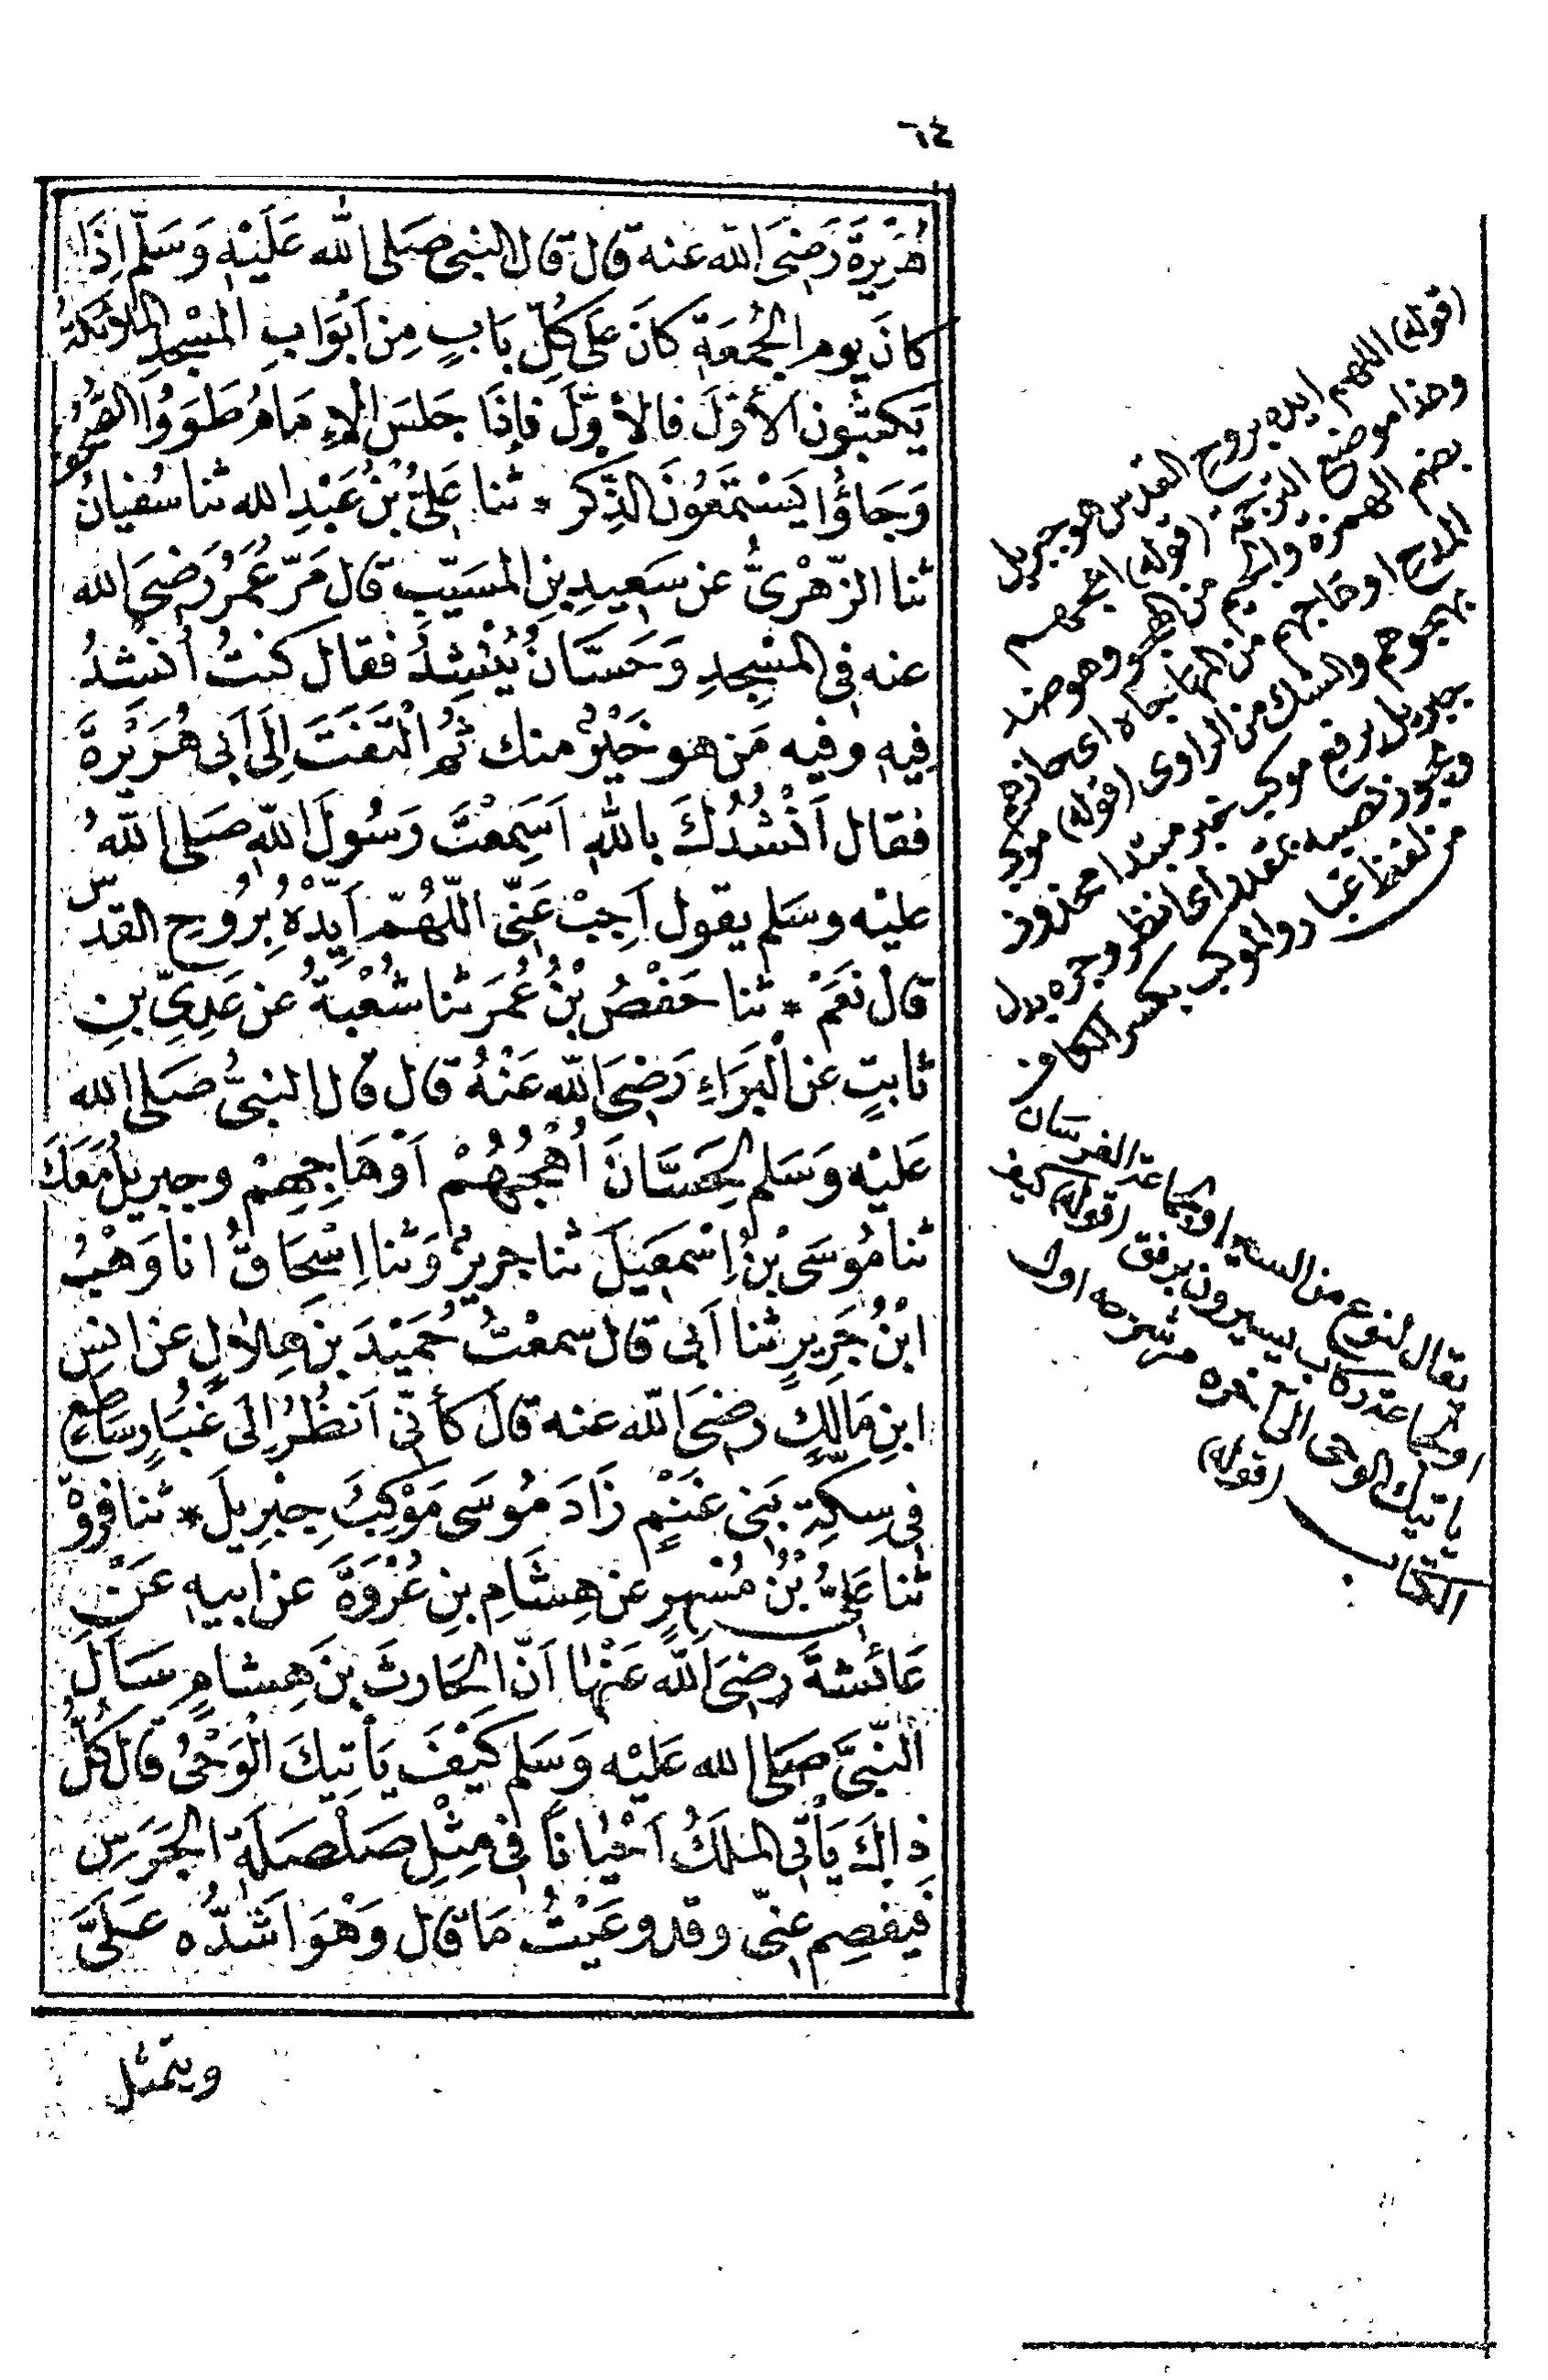 ٦٤
هُرَيْرَةَ رَضِيَ الله عنه قال قال النبى صَلى الله عَلَيْهِ وَسَلّم اِذَا
كانَ يوم الجُمعَةِ كانَ عَلى كُلِّ بَابٍ مِن اَبْوَابِ المَسْجِدِ الملائكةُ
يَكتبُون الأوّلَ فالأوّلَ فاِذَا جَلسَ الاِمَامُ طَوَوُا الصُّحُفَ
وَجَاؤُا يَسْتَمعُونَ الذِّكر * ثنا عَلىُّ بْنُ عَبْدِ الله ثنا سُفيانُ
ثنا الزّهْرىُّ عن سَعِيدِ بنِ المسَيّبِ قال مَرّ عُمَرُ رَضِيَ الله
عنه فى المسْجِدِ وَحَسَّانُ يُنْشِدُ فقال كنتُ اُنْشِدُ
فِيهِ وفيه مَن هو خَيْرٌ منك ثمّ الْتَفَتَ اِلَى اَبى هُرَيْرةَ
فقال اَنْشُدُكَ بالله اَسَمِعْتَ رَسُولَ الله صَلى اللهُ
عليْه وسَلم يقول اَجِبْ عَنّى اللّهُمّ اَيّدْهُ بِرُوحِ القدُسِ
قال نَعَمْ * ثنا حَفْصُ بْنُ عُمَرَ ثنا شُعْبَةُ عن عَدِىِّ بنِ
ثابتٍ عن البَرَاءِ رَضِيَ الله عَنْهُ قال قال النبىُّ صَلى الله
عَلَيْه وَسَلم لِحَسَّانَ اُهْجُهُمْ اَوْهَاجِهِمْ وجبريلُ مَعَكَ
ثنا مُوسَى بْنُ اِسْمعِيلَ ثنا جريرٌ وَثنا اِسْحَاقُ انا وَهْبُ
ابْنُ جَرِيرٍ ثنا اَبى قال سمعْتُ حُمَيْدَ بنَ هِلالٍ عن انسِ
ابنِ مَالِكٍ رضىَ الله عنه قال كأنّى اَنظُرُ اِلَى غُبَارٍ سَاطِعٍ
فى سِكّةِ بَنى غَنْمٍ زَادَ مُوسَى مَوْكِبَ جِبْرِيلَ * ثنا فروَةُ
ثنا عَلىُّ بْنُ مُسْهِرٍ عن هِشَامِ بنِ عُرْوَةَ عن ابيهِ عَنْ
عَائشةَ رضىَ الله عَنْهَا اَنّ الحَارثَ بنَ هِشامٍ سَاَلَ
النّبىَّ صَلى الله عَلَيْه وَسَلم كَيْفَ يَأتِيكَ الْوَحْىُ قال كُلُّ
ذاكَ يَأْتى المَلَكُ اَحْيَانًا فى مِثْلِ صَلْصَلَةِ الجَرَسِ
فَيفصِم عنّى وقد وعَيْتُ مَا قال وَهْوَ اَشَدُّه عَلَىَّ
ويتمثل
(قوله) اللهم ايده بروح القدس هو جبريل
وهذا موضع الترجمة (قوله) اهجهم
بضم الهمزة والجيم من الهجو وهو ضد
المدح اوهاجهم من المهاجاة اى جازهم
بهجوهم والشك من الراوى (قوله) موكب
جبريل برفع موكب خبر مبتدا محذوف
ويجوز نصبه بتقدير انظر وجره بدل
من لفظ غبار والموكب بكسر الكاف
يقال لنوع من السير اولجماعة الفرسان
اولجماعة ركاب يسيرون برفق (قوله) كيف
ياتيك الوحى الخ مر شرحه اول
الكتاب (قوله)